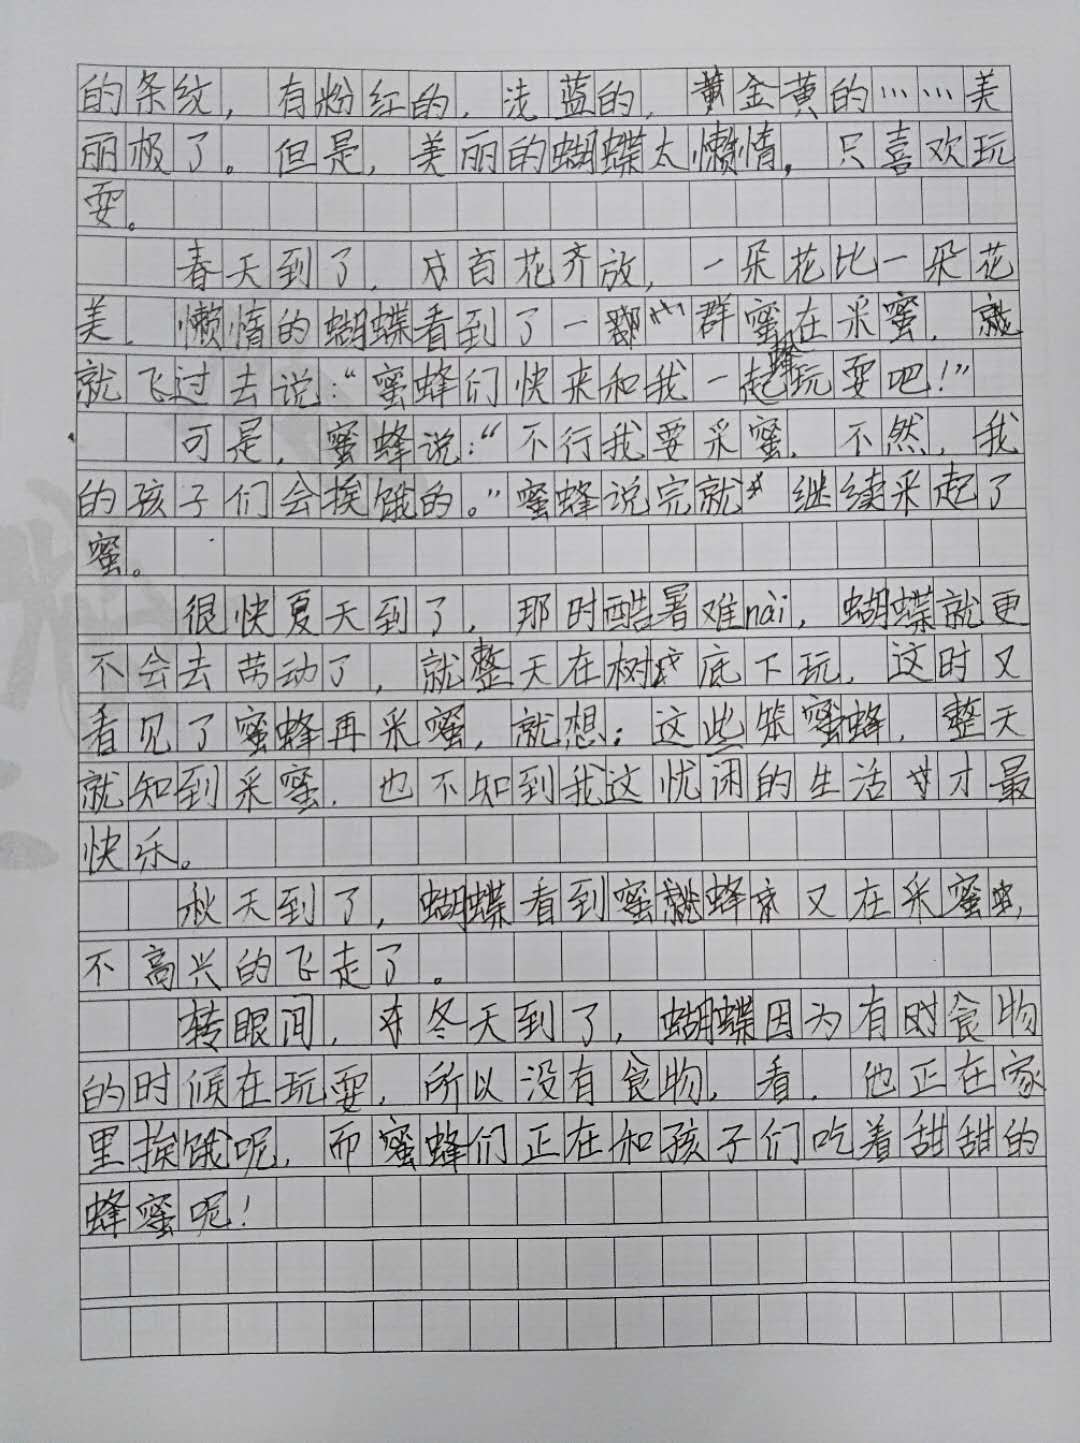 的条纹，有粉红的，浅蓝的，黄金黄的……美
丽极了。但是，美丽的蝴蝶太懒惰，只喜欢玩
耍。
春天到了，百花齐放，一朵花比一朵花
美，懒惰的蝴蝶看到了一群蜜蜂在采蜜，就
就飞过去说：“蜜蜂们快来和我一起玩耍吧！”
可是，蜜蜂说：“不行我要采蜜，不然，我
的孩子们会挨饿的。”蜜蜂说完就继续采起了
蜜。
很快夏天到了，那时酷暑难nài，蝴蝶就更
不会去劳动了，就整天在树底下玩，这时又
看见了蜜蜂再采蜜，就想：这些笨蜜蜂，整天
就知到采蜜，也不知到我这忧闲的生活才最
快乐。
秋天到了，蝴蝶看到蜜蜂又在采蜜，
不高兴的飞走了。
转眼间，冬天到了，蝴蝶因为有时食物
的时候在玩耍，所以没有食物，看，他正在家
里挨饿呢，而蜜蜂们正在和孩子们吃着甜甜的
蜂蜜呢！